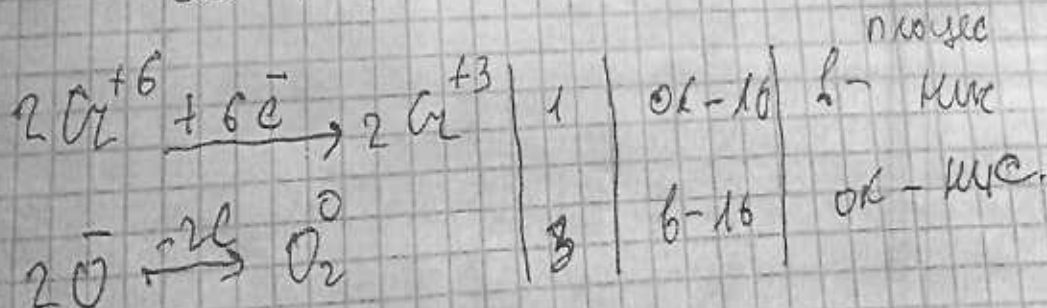 процес
2Cr⁺⁶ +6ē → 2Cr⁺³ | 1 | ок-ль | в- ние
2O⁻ -2e → O₂⁰ | 3 | в-ль | ок-ние.